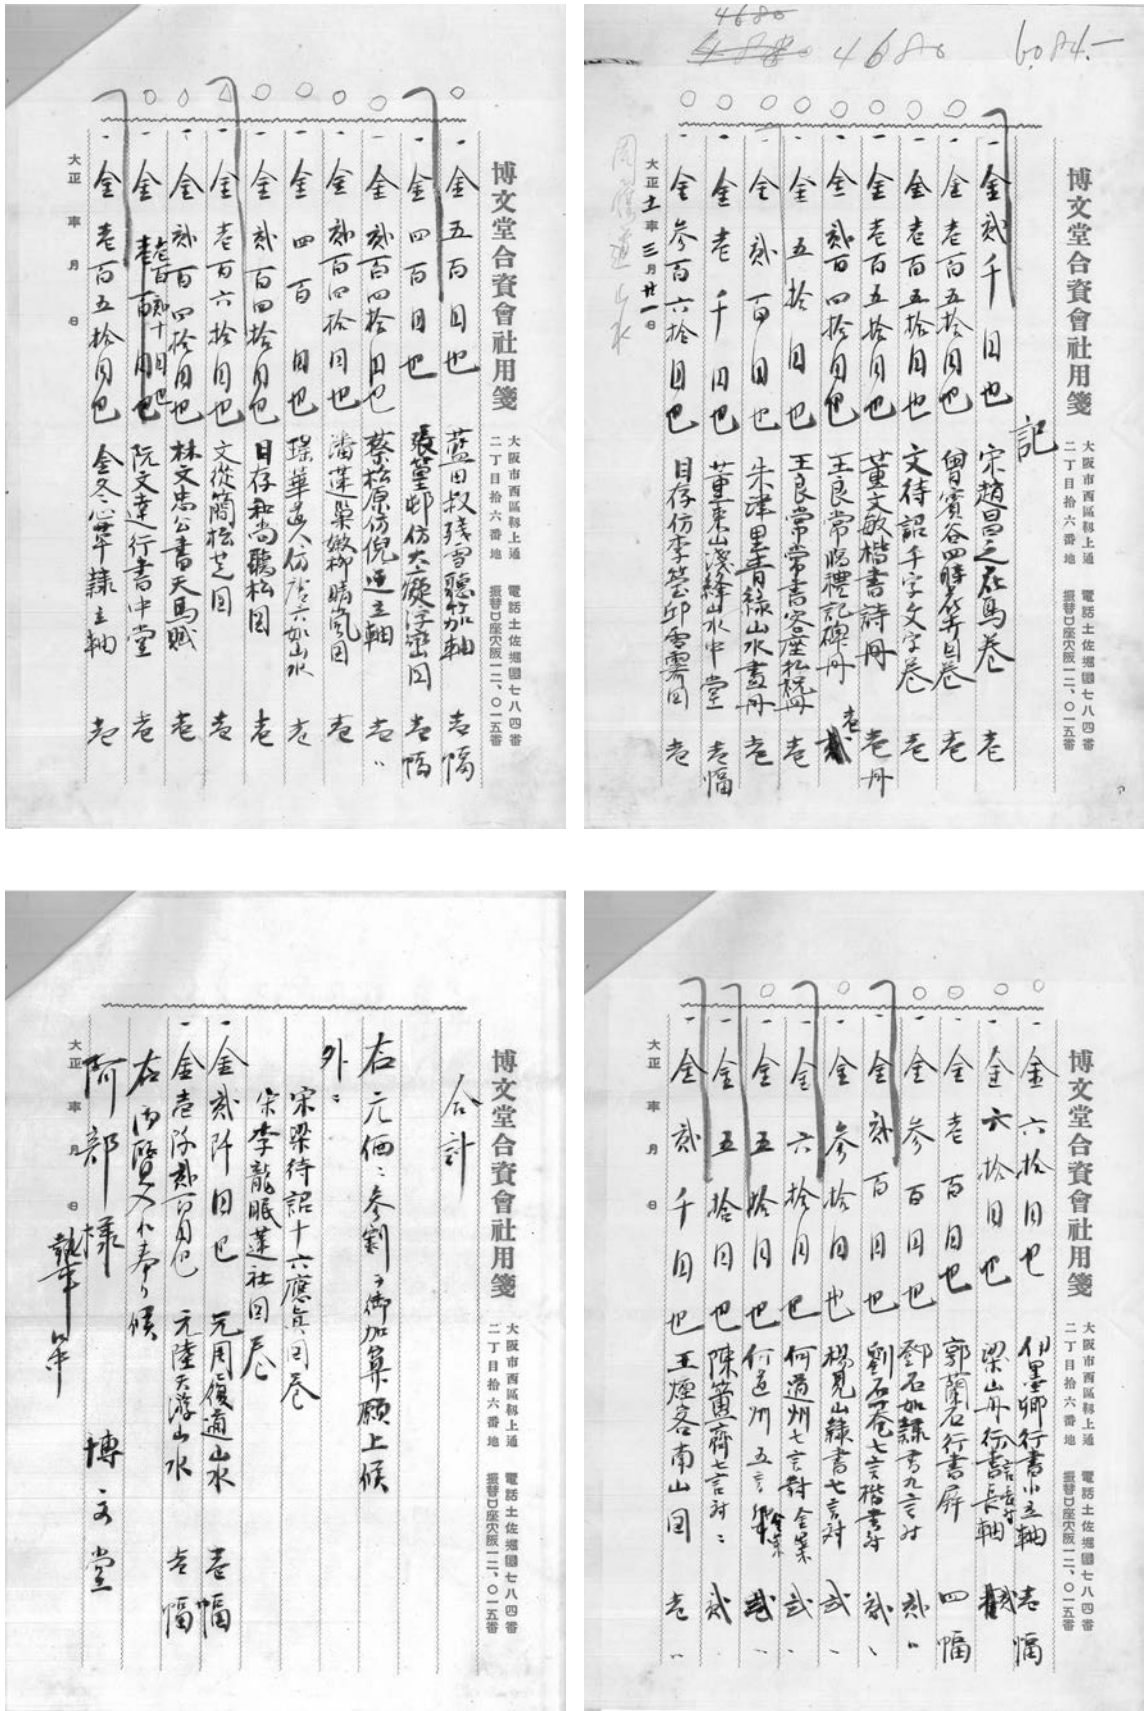 4680
4680
6084.-
博文堂合資會社用箋
大阪市西區靱上通
二丁目拾六番地
電話土佐堀國七八四番
振替口座大阪一二、〇一五番
記
一金貳千円也 宋趙昌之在馬卷 壱
一金壱百五拾円也 曾賓谷四時花卉図卷 壱
一金壱百五拾円也 文待詔千字文字卷 壱
一金壱百五拾円也 董文敏楷書詩冊 壱冊
一金貳百四拾円也 王良常臨禮記碑冊 壱
一金五拾円也 王良常書座冊 壱
一金貳百円也 朱津里青綠山水畫冊 壱
一金壱千円也 董東山淺絳山水中堂 壱幅
一金参百六拾円也 目存仿李營邱雪霽図 壱
大正十一年三月廿一日
博文堂合資會社用箋
大阪市西區靱上通
二丁目拾六番地
電話土佐堀國七八四番
振替口座大阪一二、〇一五番
一金五百円也 藍田叔残雪聽竹軸 壱幅
一金四百円也 張篁邨仿大癡浮巒図 壱幅
一金貳百四拾円也 蔡松原仿倪迂立軸 壱〃
一金貳百四拾円也 潘蓮巢嫩柳晴嵐図 壱
一金四百円也 瑤華道人仿唐六如山水 壱
一金貳百四拾円也 目存和尚聽松図 壱
一金壱百六拾円也 文從簡松芝図 壱
一金貳百四拾円也 林文忠公書天馬賦 壱
一金壱百貳十円也 阮文達行書中堂 壱
一金壱百五拾円也 金冬心隸立軸 壱
大正 年 月 日
博文堂合資會社用箋
大阪市西區靱上通
二丁目拾六番地
電話土佐堀國七八四番
振替口座大阪一二、〇一五番
一金六拾円也 伊墨卿行書小立軸 壱幅
一金六拾円也 梁山舟行書長軸
一金壱百円也 郭蘭石行書屏 四幅
一金参百円也 鄧石如隸書九言対 貳〃
一金貳百円也 劉石菴七言楷書対 貳〃
一金参拾円也 楊見山隸書七言対 貳〃
一金六拾円也 何道州七言對金箋 貳〃
一金五拾円也 何道州五言金箋 貳〃
一金五拾円也 陳簠齋七言対 貳〃
一金貳千円也 王煙客南山図 壱〃
大正 年 月 日
博文堂合資會社用箋
大阪市西區靱上通
二丁目拾六番地
電話土佐堀國七八四番
振替口座大阪一二、〇一五番
合計
右元価ニ参割ヲ御加算願上候
外ニ
宋梁待詔十六應真図卷
宋李龍眠蓮社図卷
一金貳阡円也 元周復甫山水 壱幅
一金壱阡貳百円也 元陸天游山水 壱幅
右御覽入れ奉り候
博文堂
阿部様
執事
大正 年 月 日